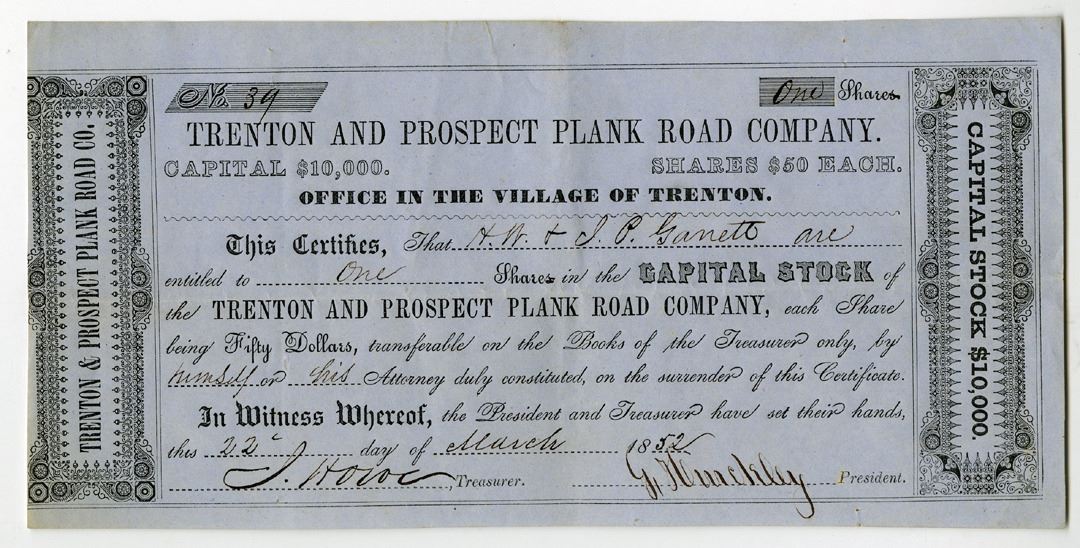 No. 39
One Shares
TRENTON AND PROSPECT PLANK ROAD COMPANY.
CAPITAL $10,000. SHARES $50 EACH.
OFFICE IN THE VILLAGE OF TRENTON.
This Certifies, That H. W. & J. P. Garrett are
entitled to One Shares in the CAPITAL STOCK of
the TRENTON AND PROSPECT PLANK ROAD COMPANY, each Share
being Fifty Dollars, transferable on the Books of the Treasurer only, by
himself or his Attorney duly constituted, on the surrender of this Certificate.
In Witness Whereof, the President and Treasurer have set their hands,
this 22 day of March 1852
J. Howe, Treasurer. G. Hinckley President.
TRENTON & PROSPECT PLANK ROAD CO.
CAPITAL STOCK $10,000.